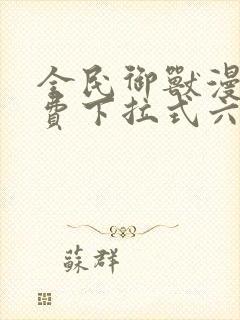 全民御獸漫
費下拉式六
蘇群